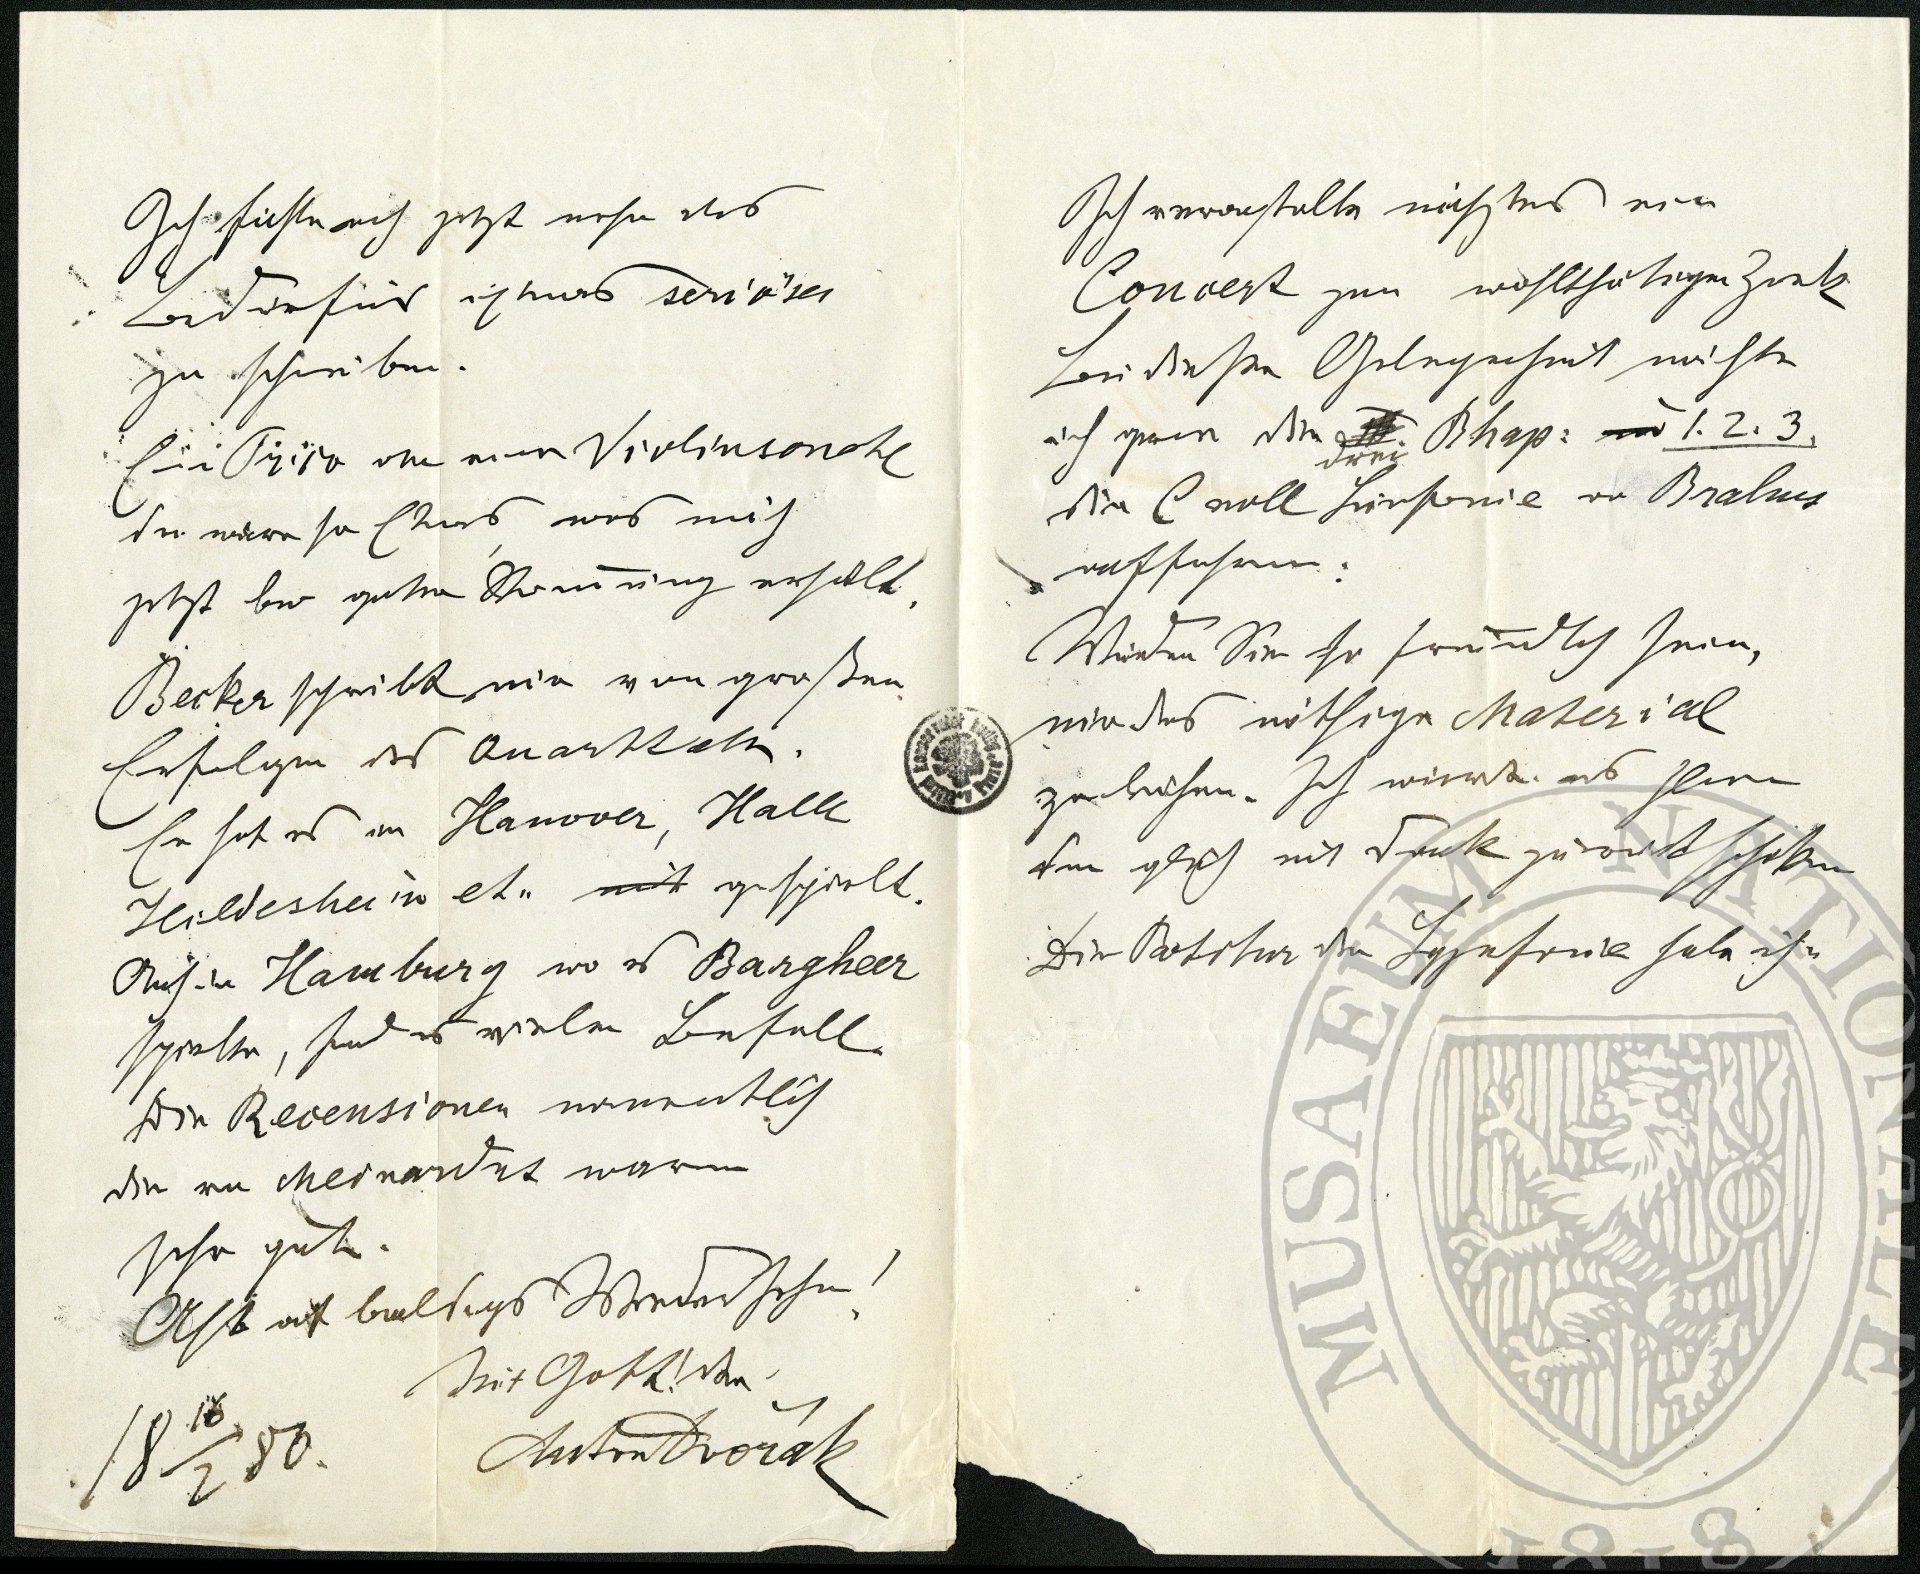 Ich fühle auch jetzt mehr das
Bedürfniß etwas seriöses
zu schreiben.
Ein Trio oder eine Violinsonate
das wäre so Etwas was mich
jetzt bei guter Stimmung erhält.
Becker schreibt mir von großen
Erfolgen des Quartetts.
Er hat es in Hanover, Halle
Hildesheim etc. mit gespielt.
Auch in Hamburg wo es Bargheer
spielte, fand es vielen Beifall.
Die Recensionen namentlich
die von Meinardus waren
sehr gut.
Also auf baldiges Wiedersehn!
Mit Gott! Ihr
18 16/2 80. Anton Dvořák
Ich veranstalte nächstes ein
Concert zum wohlthätigen Zweck
bei dieser Gelegenheit möchte
ich gern die drei Rhap: 1. 2. 3.
die C moll Sinfonie von Brahms
aufführen:
Würden Sie so freundlich sein,
mir das nöthige Material
zu leihen. Ich würde es Ihnen
dann gleich mit Dank zurück schicken
Die Partitur der Symfonie habe ich
MUSAEUM NATIONALE
1818